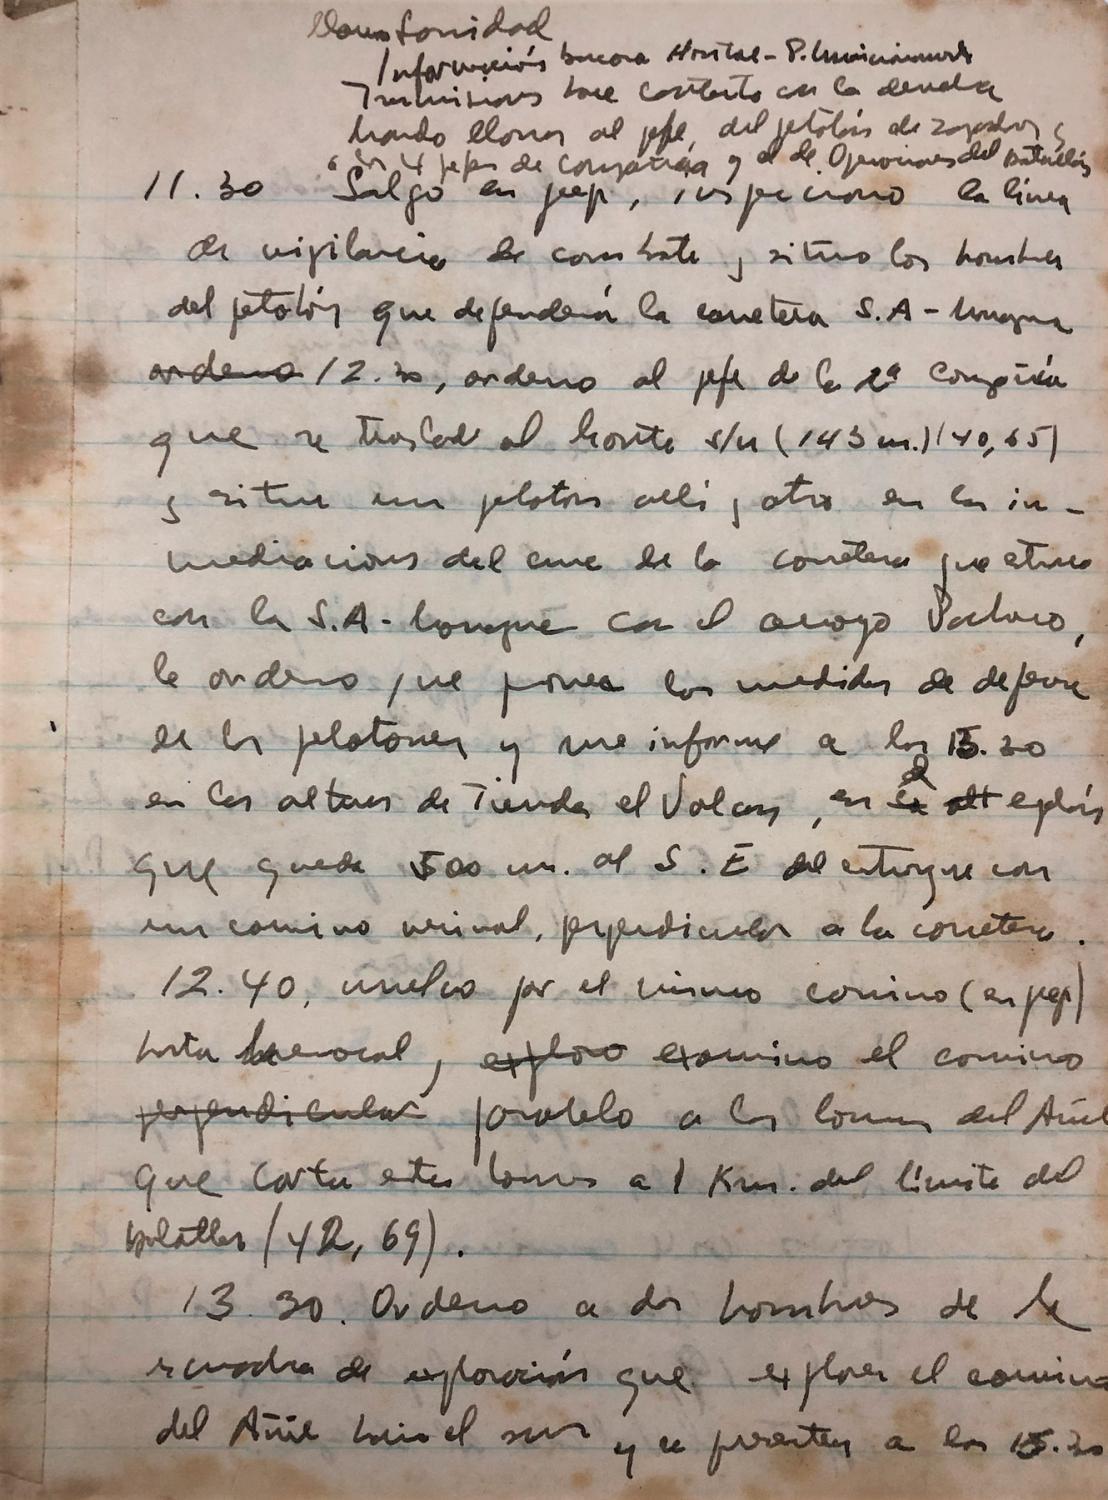 Sanidad
Información busca Hostal - P. Municionamiento
Transmisiones hace contacto con la derecha
mando llamar al jefe del pelotón de zapadores y
a los 4 jefes de compañía y el de Operaciones del Batallón
11.30 Salgo en jeep, inspecciono la línea
de vigilancia de combate y sitúo los hombres
del pelotón que defenderá la carretera S.A -
ordeno 12.30, ordeno al jefe de la 2ª Compañía
que se traslade al monte s/n (143 m.) (40,65)
y sitúe un pelotón allí y otro en las in-
mediaciones del cruce de la carretera que
con la S.A - con el arroyo
le ordeno que prevea las medidas de defensa
de los pelotones y me informe a las 15.30
en las alturas de Tienda el Volcán, en el
que queda 500 m. al S.E del entronque con
un camino vecinal, perpendicular a la carretera.
12.40, vuelvo por el mismo camino (en jeep)
hasta, exploro examino el camino
perpendicular paralelo a las lomas del Añil
que corta estas lomas a 1 Km. del límite del
batallón (42, 69).
13.30. Ordeno a dos hombres de la
escuadra de exploración que exploren el camino
del Añil hacia el sur y se presenten a las 15.30